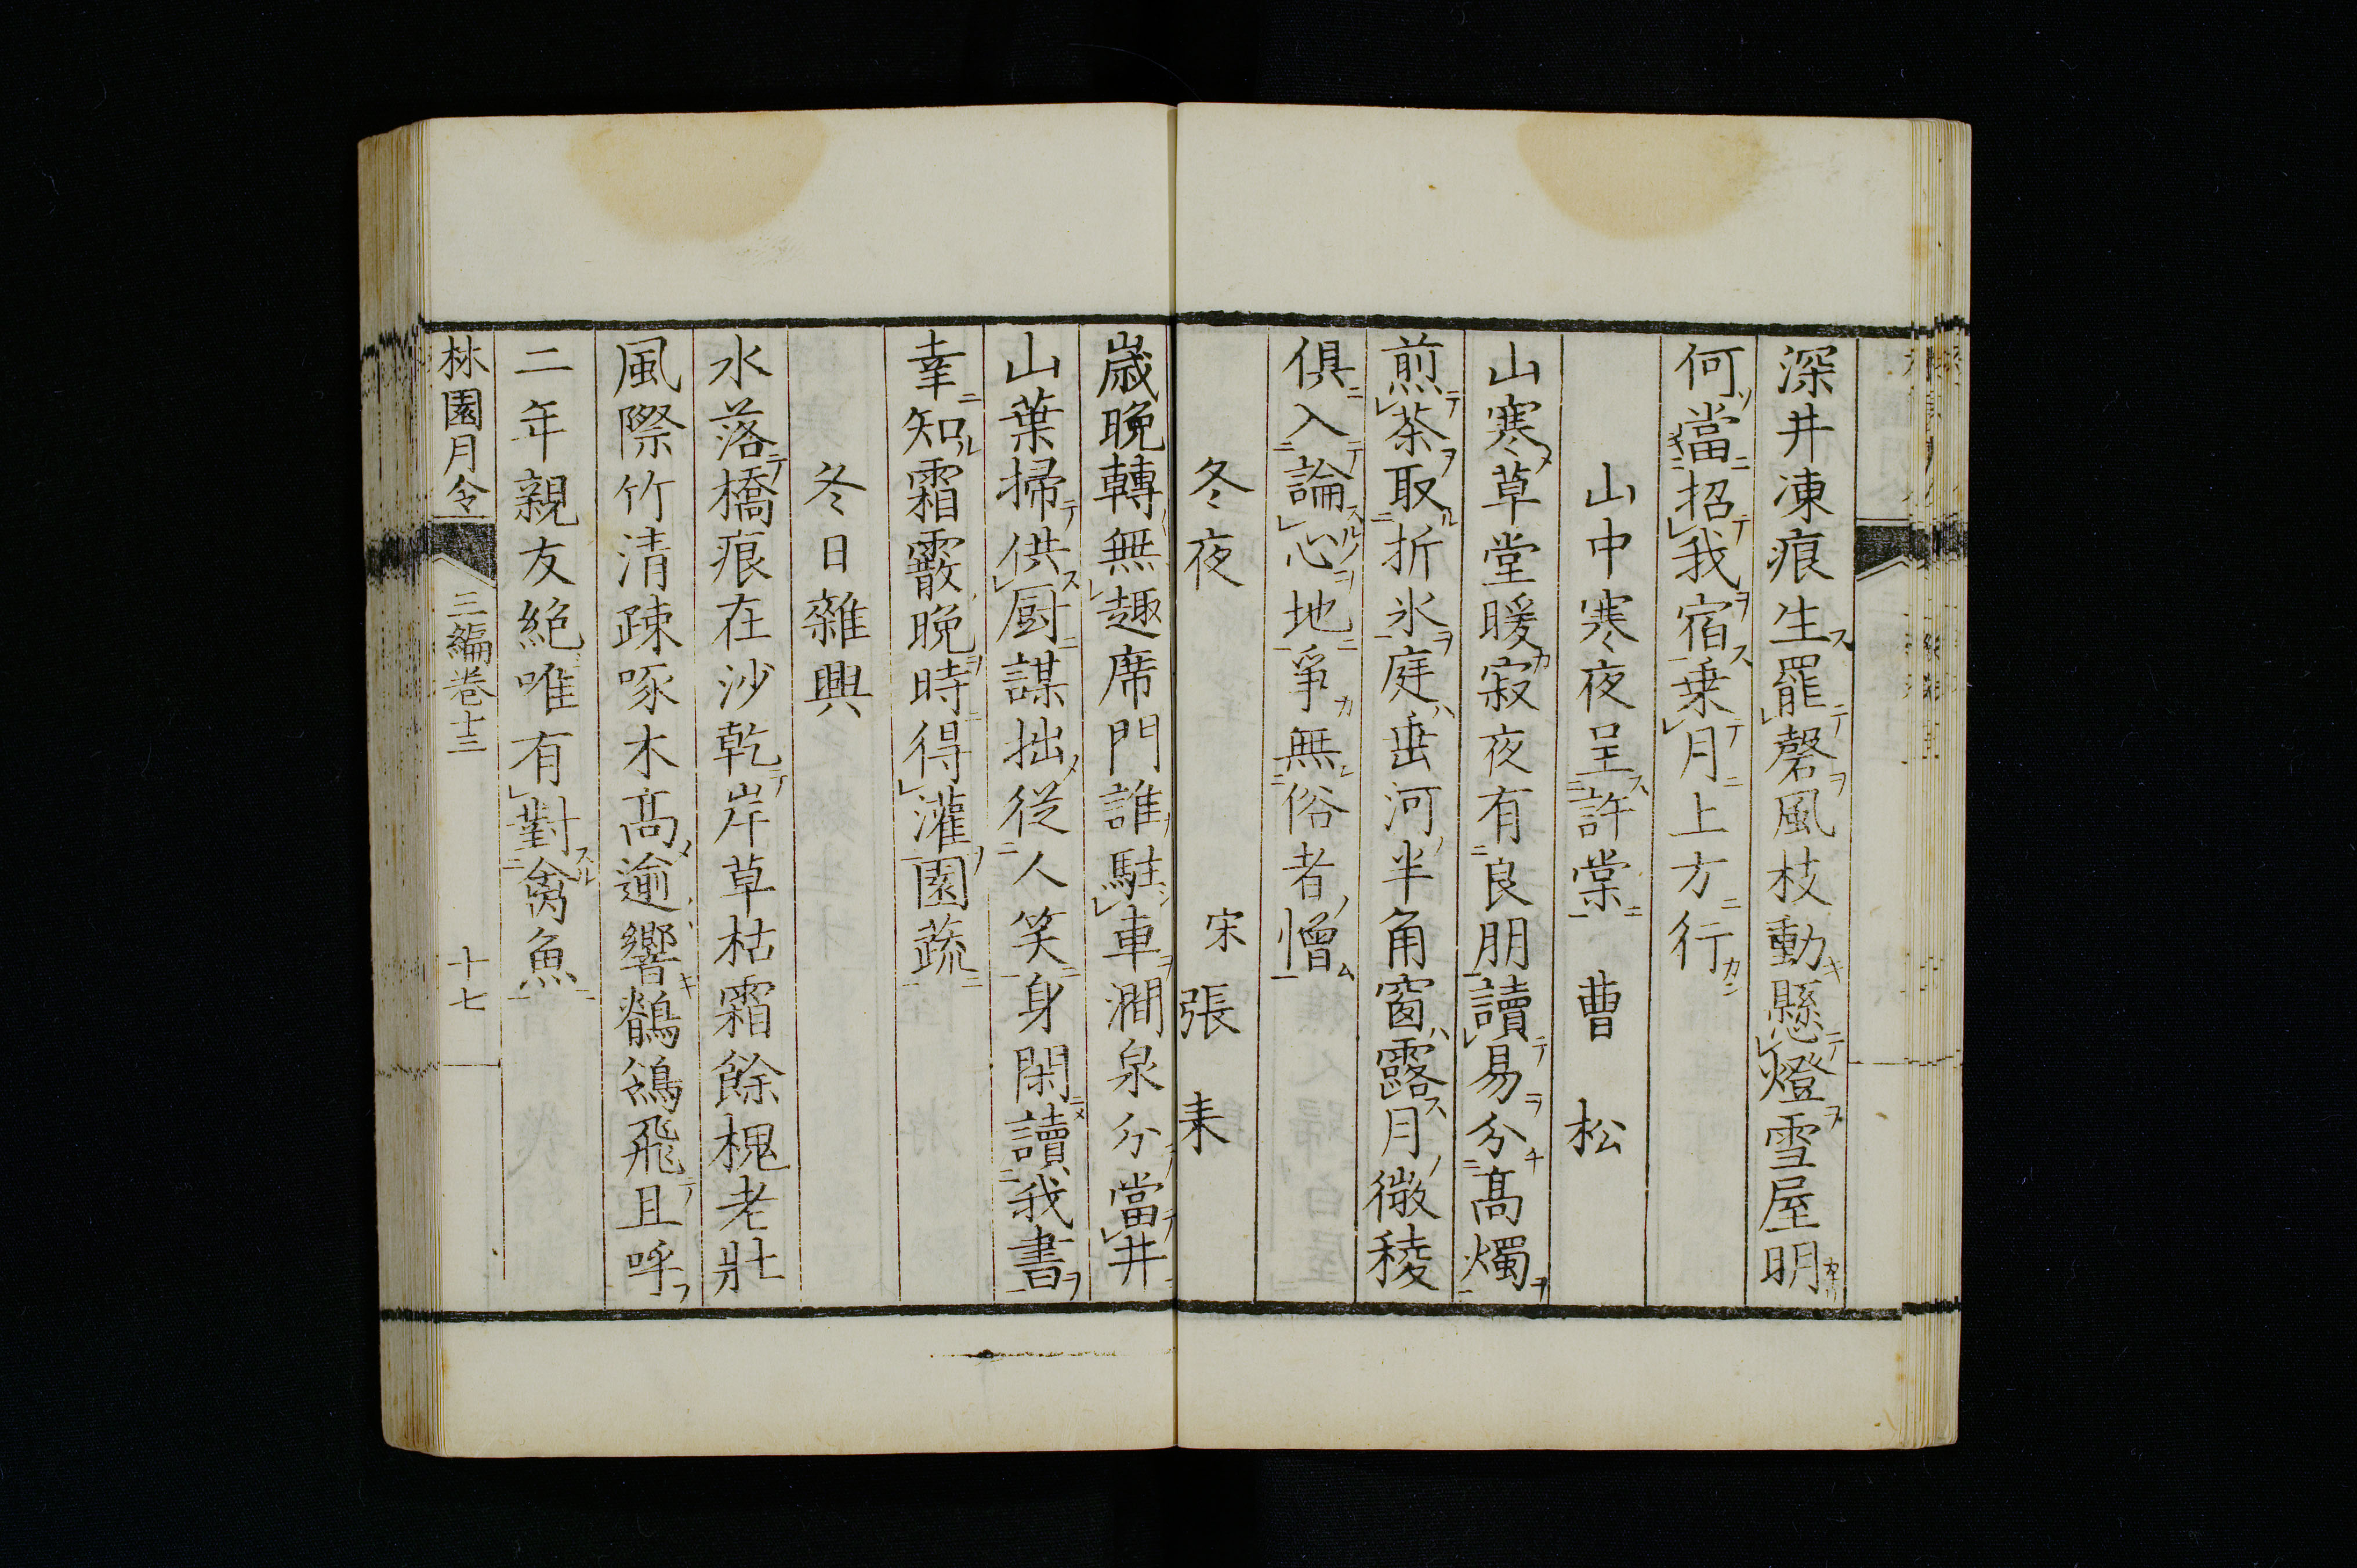 深井凍痕生罷磬風枝動懸燈雪屋明
何當招我宿乗月上方行
山中寒夜呈許棠　曹松
山寒草堂暖寂夜有良朋讀易分髙燭
煎茶取折氷庭垂河半角窗露月微稜
俱入論心地爭無俗者憎
冬夜　宋張耒
嵗晚轉無趣席門誰駐車澗泉分當井
山葉掃供厨謀拙從人笑身閑讀我書
幸知霜霰晚時得灌園蔬
冬日雜興
水落橋痕在沙乾岸草枯霜餘槐老壯
風際竹清疎啄木髙逾響鶺鴒飛且呼
二年親友絶唯有對禽魚
林園月令　三編卷十三　十七